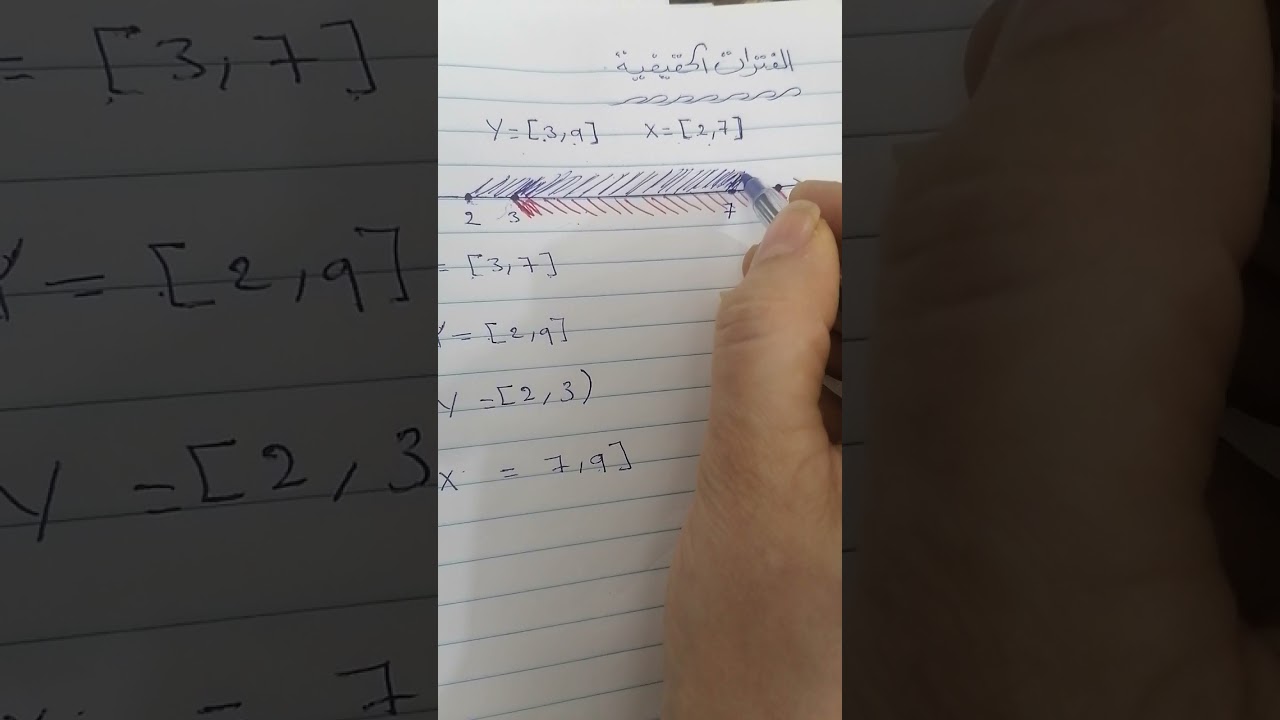 الفترات الحقيقية
Y=[3,9] X=[2,7]
2 3 7
= [3,7]
Y= [2,9]
Y =[2,3)
X = 7,9]